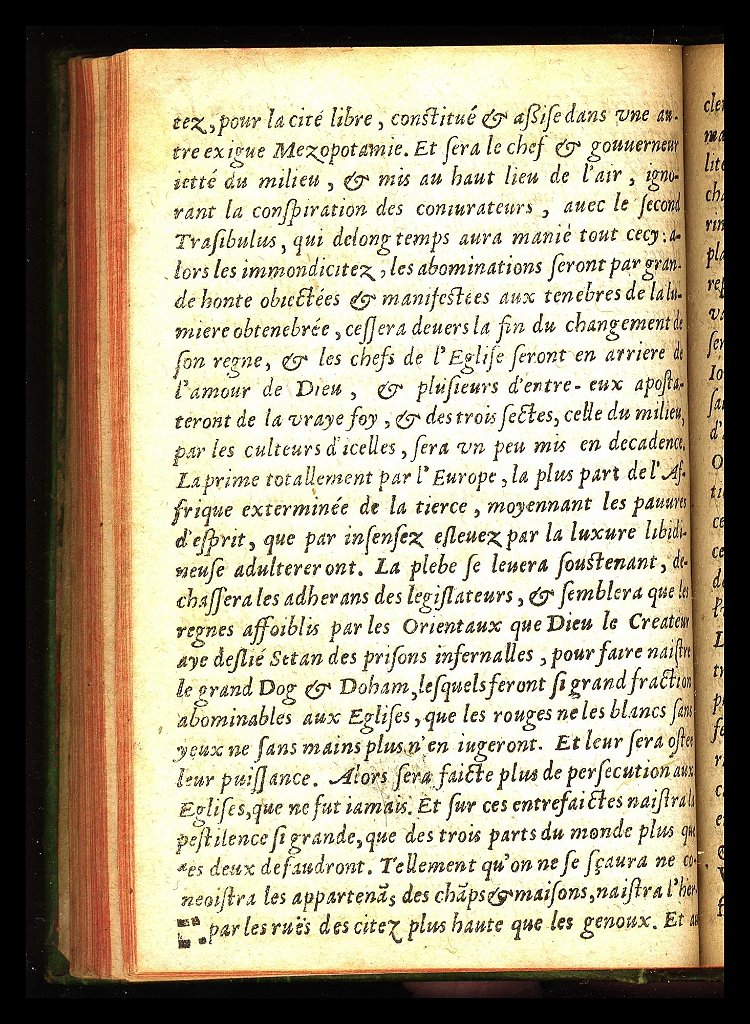 tez, pour la cité libre, constitué & assise dans vne au-
tre exigue Mezopotamie. Et sera le chef & gouuerneur
ietté du milieu, & mis au haut lieu de l'air, igno-
rant la conspiration des coniurateurs, auec le second
Trasibulus, qui delong temps aura manié tout cecy: a-
lors les immondicitez, les abominations seront par gran-
de honte obiectées & manifestées aux tenebres de la lu-
miere obtenebrée, cessera deuers la fin du changement de
son regne, & les chefs de l'Eglise seront en arriere de
l'amour de Dieu, & plusieurs d'entre-eux aposta-
teront de la vraye foy, & des trois sectes, celle du milieu,
par les culteurs d'icelles, sera vn peu mis en decadence.
La prime totallement par l'Europe, la plus part de l'Af-
frique exterminée de la tierce, moyennant les pauures
d'esprit, que par insensez esleuez par la luxure libidi-
neuse adultereront. La plebe se leuera soustenant, de-
chassera les adherans des legislateurs, & semblera que les
regnes affoiblis par les Orientaux que Dieu le Createur
aye deslié Setan des prisons infernalles, pour faire naistre
le grand Dog & Doham, lesquels feront si grand fraction
abominables aux Eglises, que les rouges ne les blancs sans
yeux ne sans mains plus n'en iugeront. Et leur sera ostée
leur puissance. Alors sera faicte plus de persecution aux
Eglises, que ne fut iamais. Et sur ces entrefaictes naistra la
pestilence si grande, que des trois parts du monde plus que
les deux defaudront. Tellement qu'on ne se sçaura ne co-
neoistra les appartenãs des chãps & maisons, naistra l'her-
par les ruës des citez plus haute que les genoux. Et au
cler
ma
lite
cha
rin
pla
rep
va
ser
Io
sa
d'
O
ti
ce
ce
de
L
tr
p
fe
r
c
e